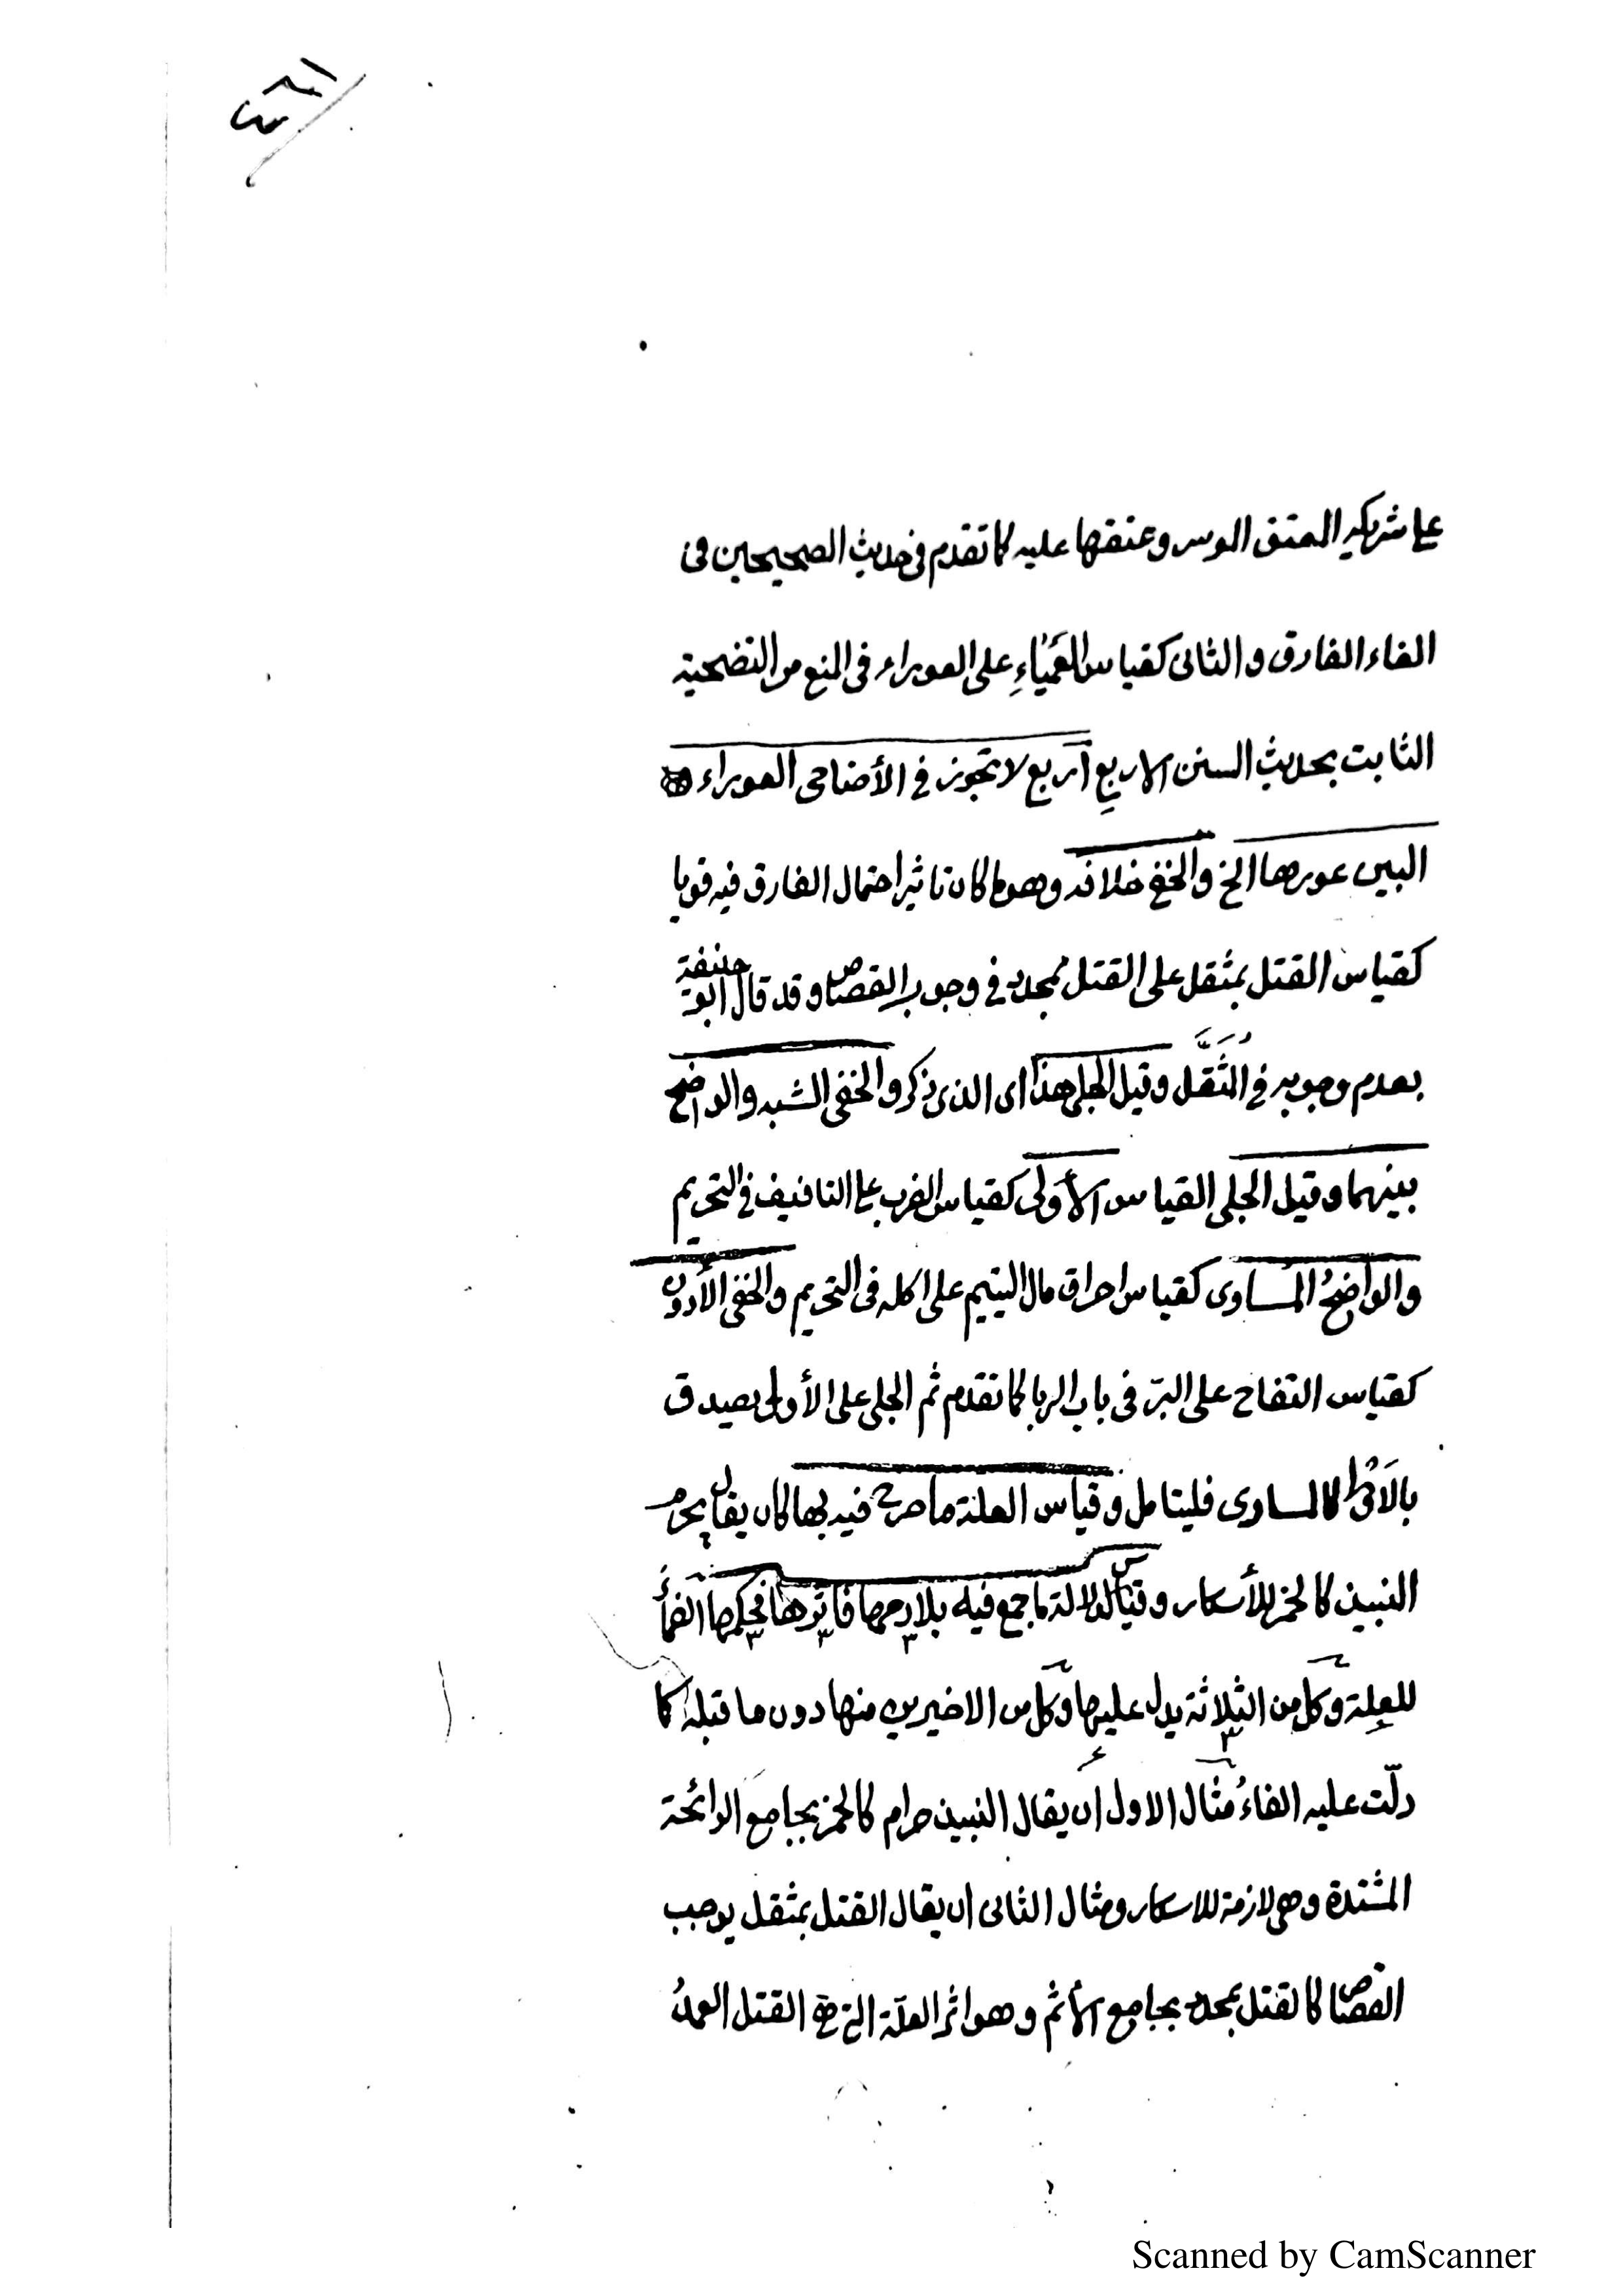 على شريكه المعتق الموسر وعتقها عليه كما تقدم في حديث الصحيحين في
الغاء الفارق والثانى كقياس العَمْيَاءِ على العوراء في المنع من التضحية
الثابت بحديث السنن الاربع أربع لا تجوز في الأضاحى العوراء
البين عورها الخ والخفى خلافه وهو ما كان تاثير احتمال الفارق فيه قويا
كقياس القتل بمثقل على القتل بمحدد في وجوب القصاص وقد قال ابو حنيفة
بعدم وجوبه في المُثَقَّل وقيل الجلى هذا اى الذى ذكر والخفى الشبه والواضح
بينهما وقيل الجلى القياس الأولى كقياس الضرب على التافيف في التحريم
والواضحُ المساوى كقياس احراق مال اليتيم على اكله في التحريم والخفى الأدون
كقياس التفاح على البرّ في باب الربا كما تقدم ثم الجلى على الأول يصدق
بالاولى كالمساوى فليتامل وقياس العلة ما صرح فيه بها كان يقال يحرم
النبيذ كالخمر للأسكار وقياس الدلالة ما جمع فيه بلازمها فأثرها فحكمها الضمائر
للعلة وكل من الثلاثة يدل عليها وكل من الاخيرين منها دون ما قبله كما
دلّت عليه الفاءُ مثال الاول أن يقال النبيذ حرام كالخمر بجامع الرائحة
المشتدة وهى لازمة للاسكار ومثال الثانى ان يقال القتل بمثقل يوجب
القصاص كالقتل بمحدد بجامع الأثم وهو اثر العلة التي هي القتل العمدُ
Scanned by CamScanner